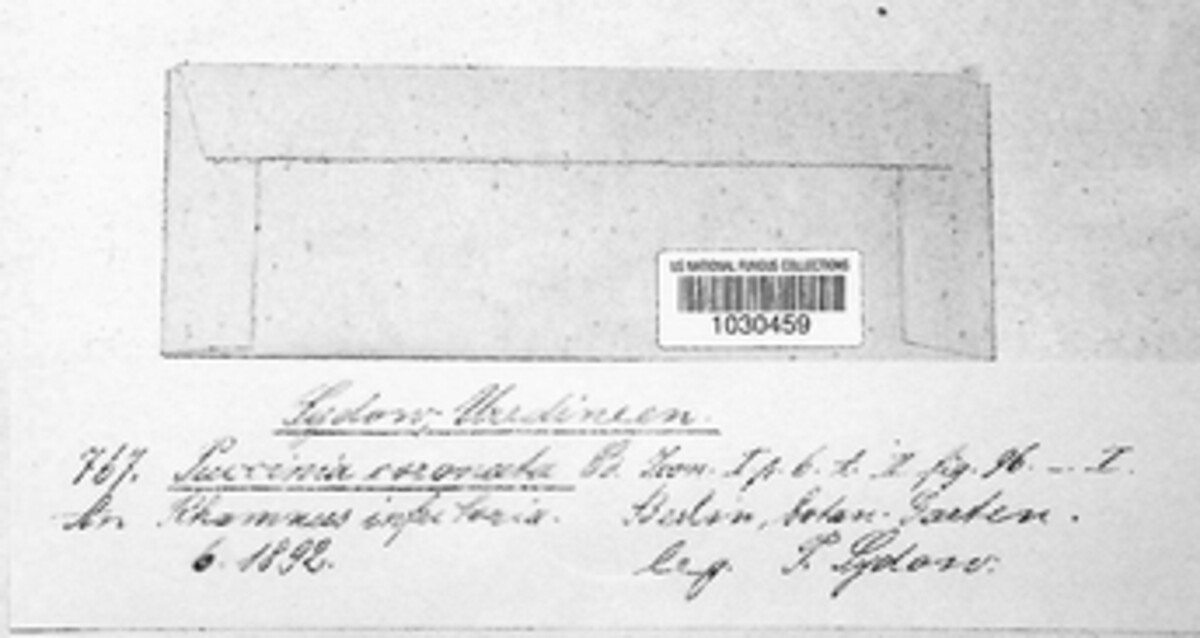 US NATIONAL FUNGUS COLLECTIONS
1030459
Sydow, Uredineen.
767. Puccinia coronata Cd. Icon. I p. 6. t. II fig. 96. — I.
An Rhamnus infectoria. Berlin, botan. Garten.
6. 1892. leg. P. Sydow.